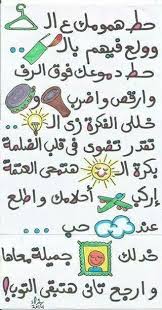 حط همومك ع الـ
وولع فيهم بالـ
حط دموعك فوق الرف
وارقص واضرب
خللى الفكرة زى الـ
تقدر تضوى فى قلب الضلمة
بكرة الـ هتمحى العتمة
إركب أحلامك واطلع
عند حب ...
خدلك جميلة معاها
وارجع تانى هتبقى التوبة!